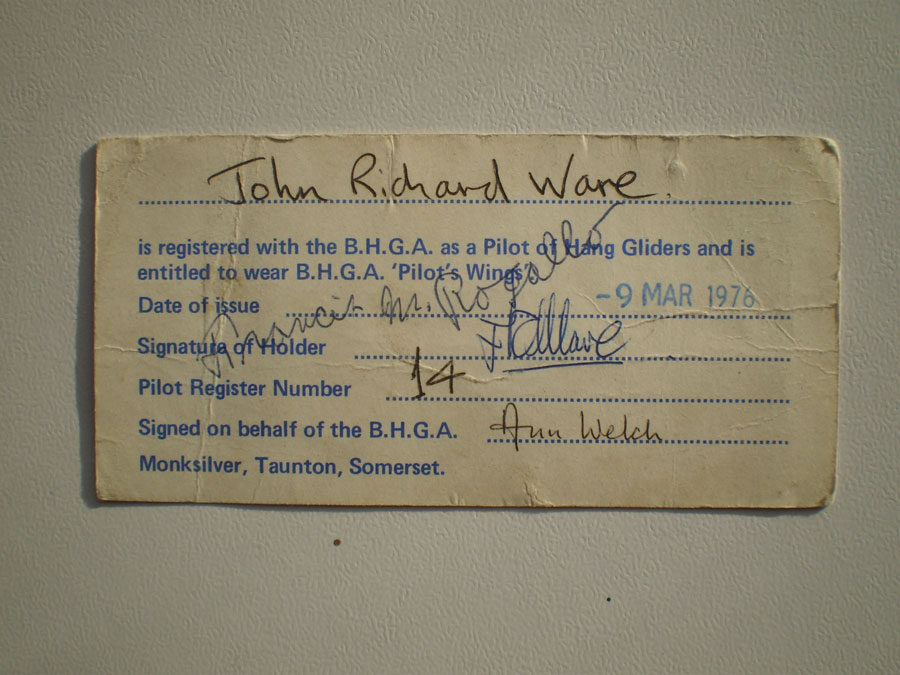 John Richard Ware.
is registered with the B.H.G.A. as a Pilot of Hang Gliders and is
entitled to wear B.H.G.A. 'Pilot's Wings'.
Date of issue -9 MAR 1976
Francis M. Rogallo
Signature of Holder
Pilot Register Number 14
Signed on behalf of the B.H.G.A. Ann Welch
Monksilver, Taunton, Somerset.